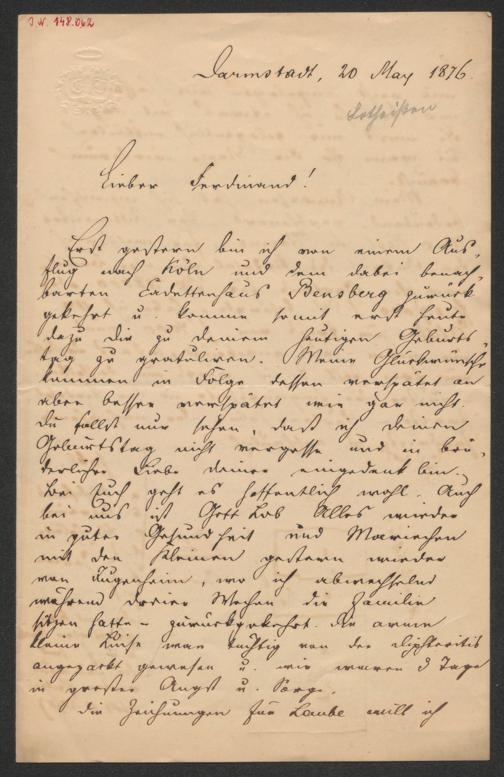 J.N. 148.062
Darmstadt, 20 May 1876.
Lotheißen
Lieber Ferdinand!
Erst gestern bin ich von einem Aus-
flug nach Köln und dem dabei benach-
barten Cadettenhaus Bensberg zurück
gekehrt u. komme somit erst heute
dazu Dir zu deinem heutigen Geburts
tag zu gratuliren. Meine Glückwünsche
kommen in Folge dessen verspätet an
aber besser verspätet wie gar nicht.
Du sollst nur sehen, daß ich deinen
Geburtstag nicht vergesse und in brü-
derlicher Liebe deiner eingedenk bin.
Bei Euch geht es hoffentlich wohl. Auch
bei uns ist Gott Lob Alles wieder
in guter Gesundheit und Mariechen
mit den Kleinen gestern wieder
von Jugenheim, wo ich abwechselnd
während dreier Wochen die Familie
sitzen hatte – zurückgekehrt. Die arme
kleine Luise war tüchtig von der diphteritis
angepackt gewesen u. wir waren 3 Tage
in großer Angst u. Sorge.
Die Zeichnungen für Laube will ich